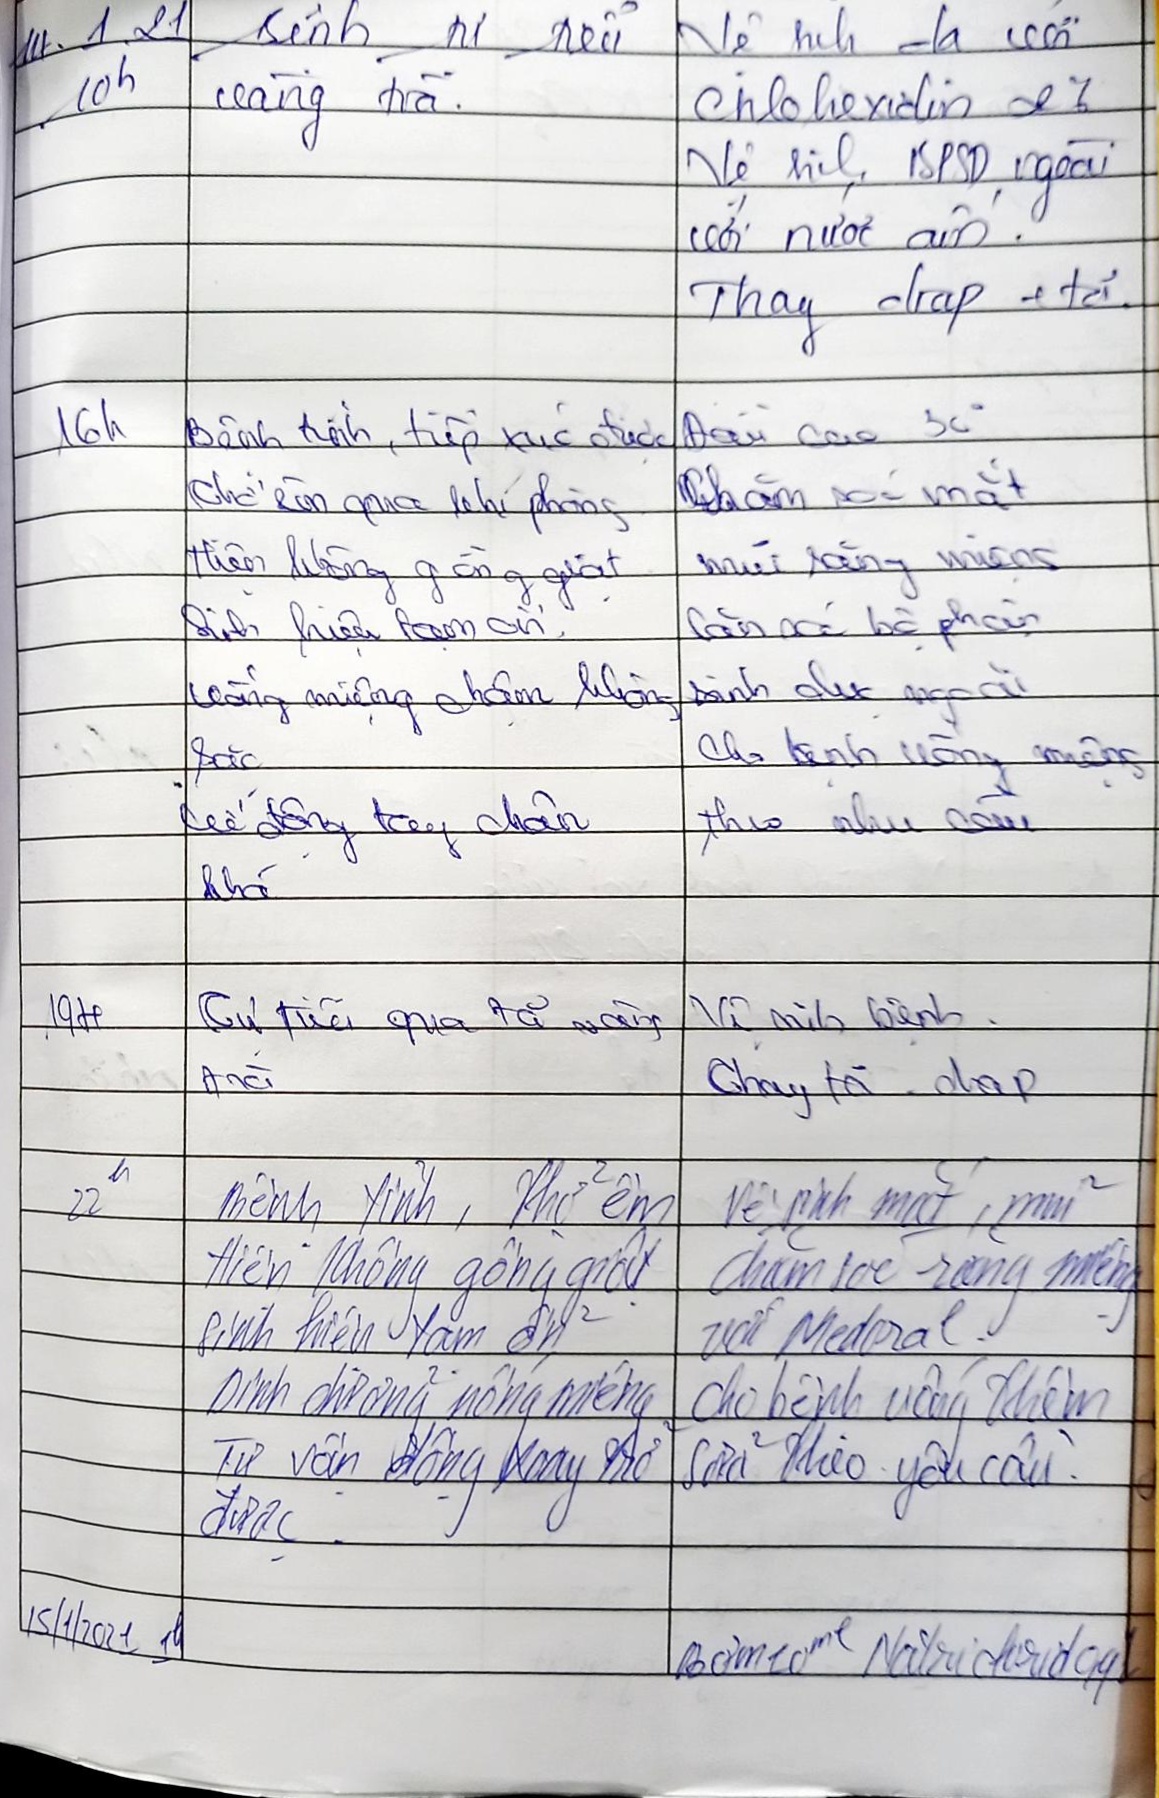 14.1.21
10h
Bệnh đi tiểu
vàng trà.
Vệ sinh da với
Chlohexidin 2%
Vệ sinh BPSD ngoài
với nước ấm.
Thay drap + tả.
16h
Bệnh tỉnh, tiếp xúc được
Hiện không gồng giật
Sinh hiệu tạm ổn.
uống miệng chậm không
sặc
Cử động tay chân
khá
Đầu cao 30°
Chăm sóc mắt
mũi răng miệng
Săn sóc bộ phận
sinh dục ngoài
Cho bệnh uống miệng
theo nhu cầu
19h
Tự tiểu qua tã vàng
Vệ sinh bệnh.
Thay tã - drap
22h
Bệnh tỉnh, thở êm
Hiện không gồng giật
sinh hiệu tạm ổn
Dinh dưỡng uống miệng
Tự vận động xoay trở
được.
Vệ sinh mắt, mũi
chăm sóc răng miệng
với Medoral.
Cho bệnh uống thêm
sữa theo yêu cầu.
15/1/2021 1h
Bơm 10ml Natriclorid 0,9%